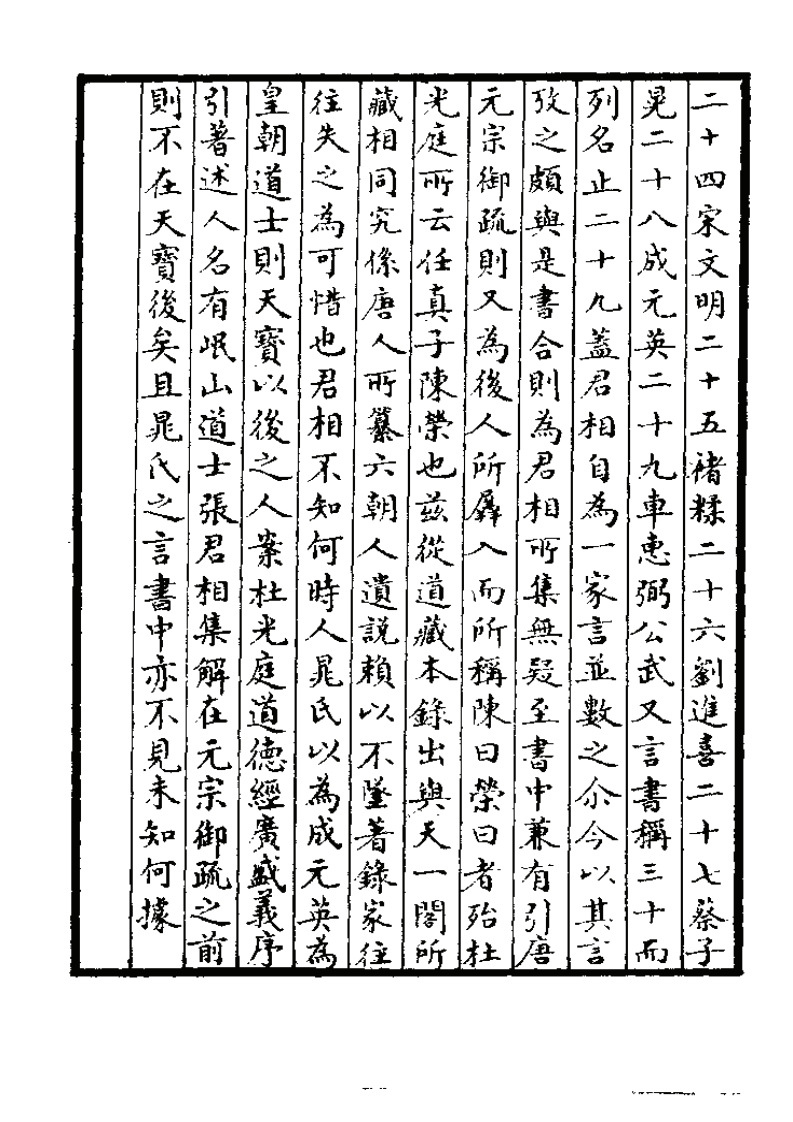 二十四宋文明二十五褚糅二十六劉進喜二十七蔡子
晃二十八成元英二十九車惠弼公武又言書稱三十而
列名止二十九蓋君相自為一家言並數之尒今以其言
攷之頗與是書合則為君相所集無疑至書中兼有引唐
元宗御疏則又為後人所羼入而所稱陳曰榮曰者殆杜
光庭所云任真子陳榮也茲從道藏本錄出與天一閣所
藏相同究係唐人所纂六朝人遺說賴以不墜著錄家往
往失之為可惜也君相不知何時人晁氏以為成元英為
皇朝道士則天寶以後之人案杜光庭道德經廣盛義序
引著述人名有岷山道士張君相集解在元宗御疏之前
則不在天寶後矣且晁氏之言書中亦不見未知何據